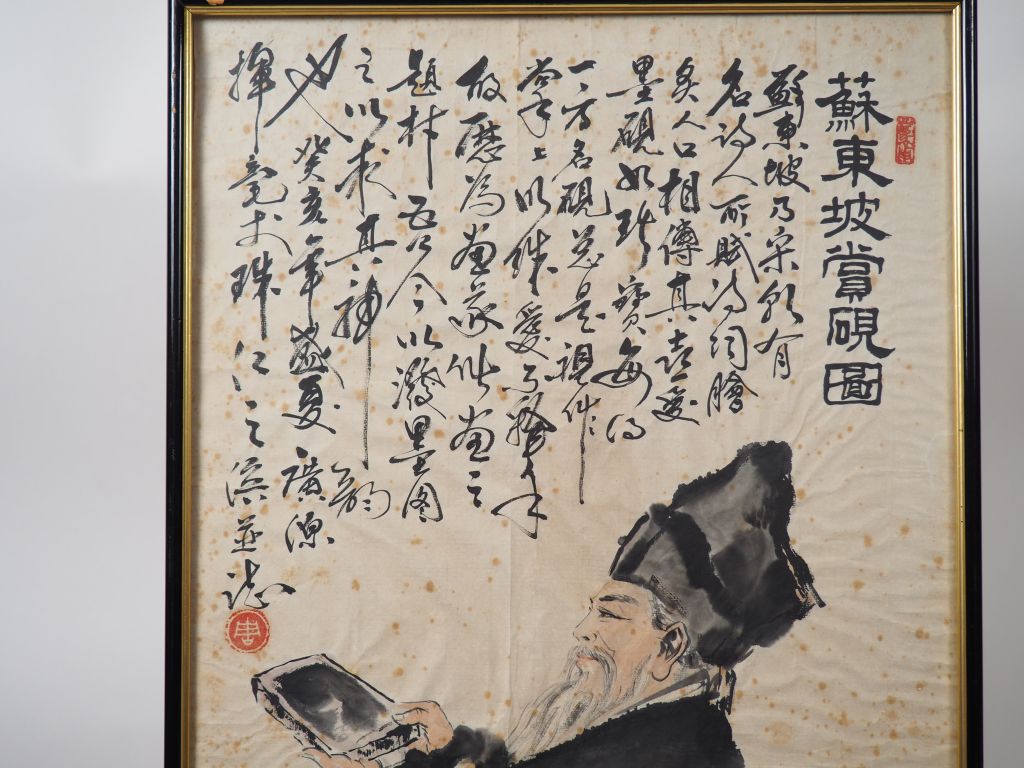 蘇東坡賞硯圖
蘇東坡乃宋朝有
名詩人所賦詩詞膾
炙人口相傳其喜愛
墨硯如珍寶每得
一方名硯總是視作
掌上明珠愛不釋手
故歷為畫家作畫之
題材吾今以潑墨圖
之以求其神韻
也癸亥年盛夏廣源
揮毫於珠江之濱並誌